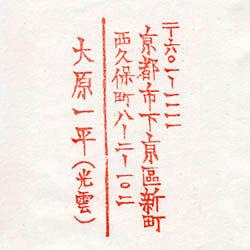 〒六〇一ー一二二
京都市下京區新町
西久保町八ー二ー一〇二
大原一平(光雲)